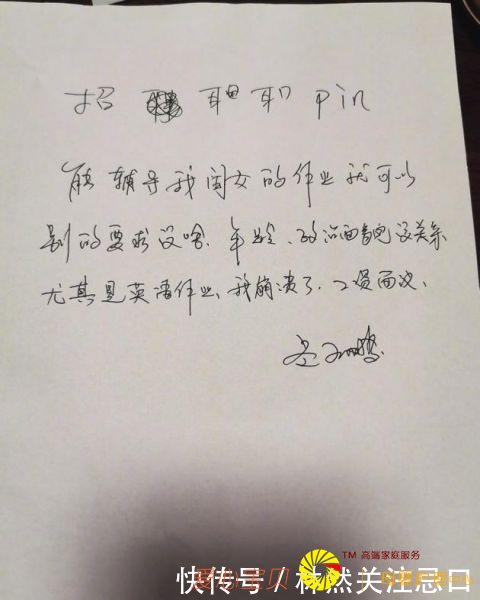 招 耳甲 耳卩 pin
能辅导我闺女的作业就可以
别的要求没啥、年龄、政治面貌没关系
尤其是英语作业、我崩溃了、工资面议、
TM 高端家庭服务
快传号 / 林然关注忌口